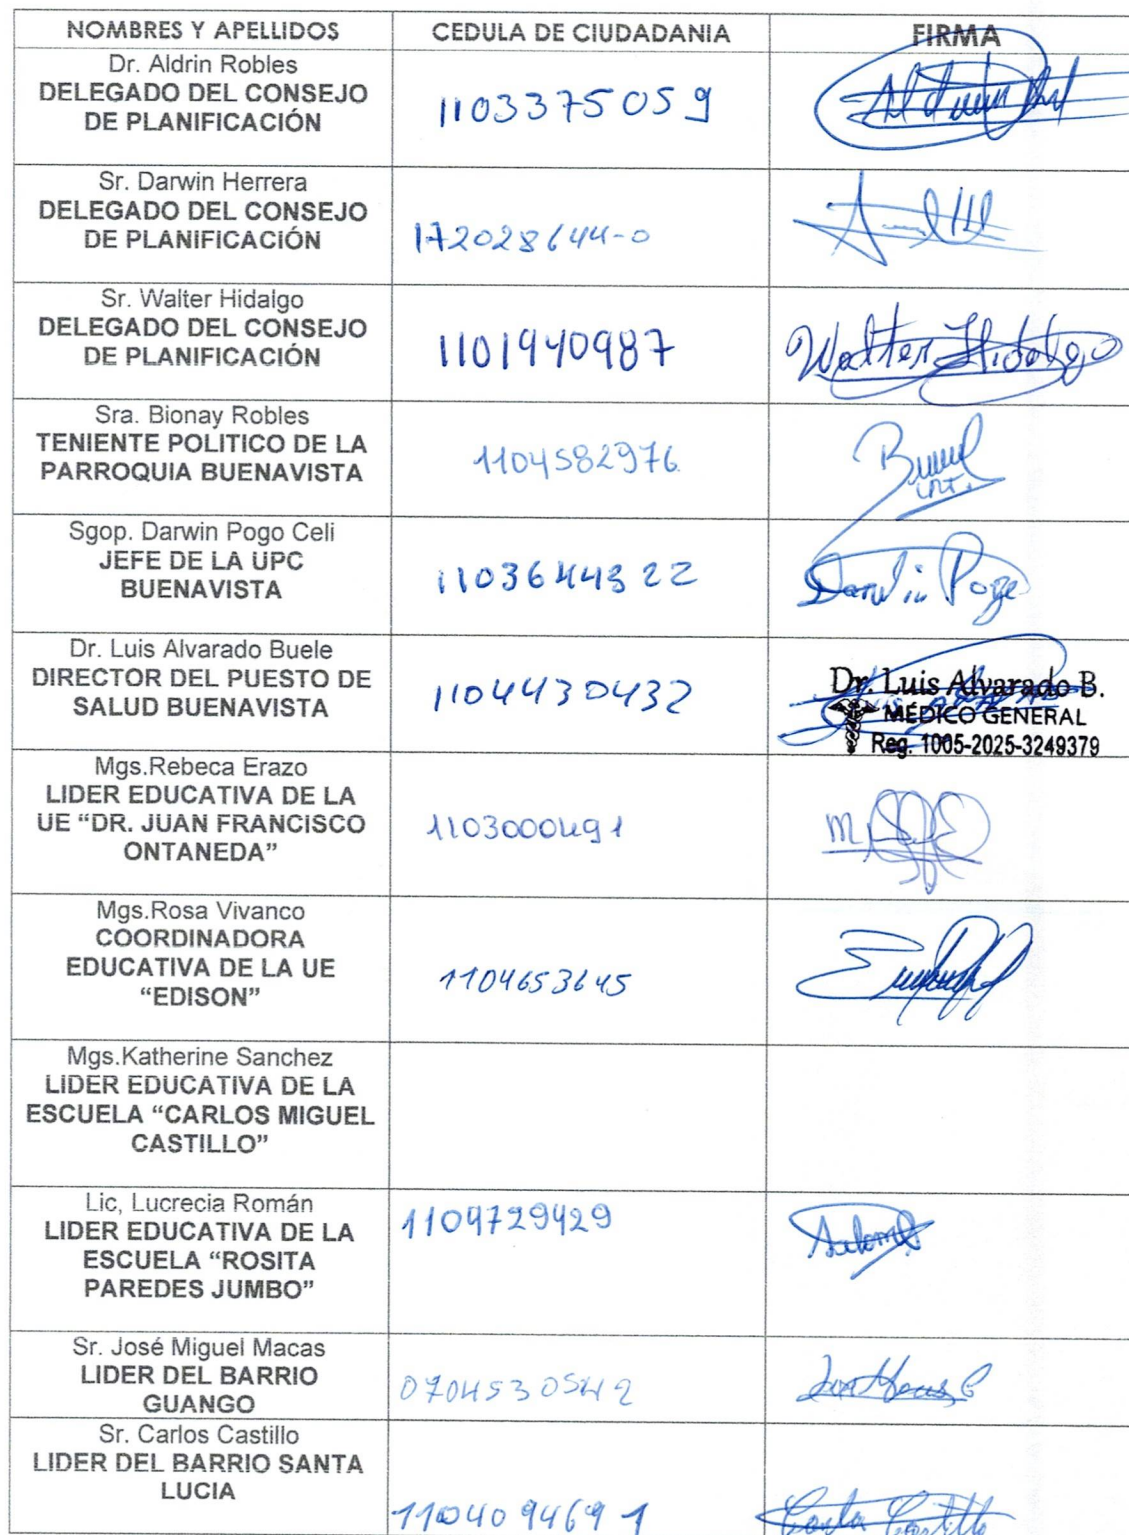 NOMBRES Y APELLIDOS CEDULA DE CIUDADANIA FIRMA
Dr. Aldrin Robles
DELEGADO DEL CONSEJO
DE PLANIFICACIÓN
1103375059
Sr. Darwin Herrera
DELEGADO DEL CONSEJO
DE PLANIFICACIÓN
172028644-0
Sr. Walter Hidalgo
DELEGADO DEL CONSEJO
DE PLANIFICACIÓN
1101940987
Walter Hidalgo
Sra. Bionay Robles
TENIENTE POLITICO DE LA
PARROQUIA BUENAVISTA
1104582976
Sgop. Darwin Pogo Celi
JEFE DE LA UPC
BUENAVISTA
1103644322
Darwin Pogo
Dr. Luis Alvarado Buele
DIRECTOR DEL PUESTO DE
SALUD BUENAVISTA
1104430432
Dr. Luis Alvarado B.
MÉDICO GENERAL
Reg. 1005-2025-3249379
Mgs.Rebeca Erazo
LIDER EDUCATIVA DE LA
UE “DR. JUAN FRANCISCO
ONTANEDA”
1103000491
Mgs.Rosa Vivanco
COORDINADORA
EDUCATIVA DE LA UE
“EDISON”
1104653645
Mgs.Katherine Sanchez
LIDER EDUCATIVA DE LA
ESCUELA “CARLOS MIGUEL
CASTILLO”
Lic, Lucrecia Román
LIDER EDUCATIVA DE LA
ESCUELA “ROSITA
PAREDES JUMBO”
1104729429
Sr. José Miguel Macas
LIDER DEL BARRIO
GUANGO
0704530542
Sr. Carlos Castillo
LIDER DEL BARRIO SANTA
LUCIA
1104094691